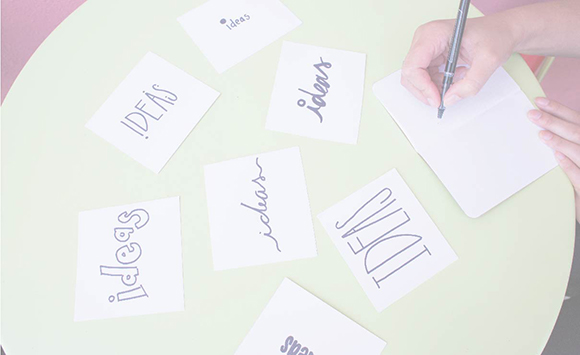 ideas
IDEAS
ideas
ideas
ideas
IDEAS
ideas